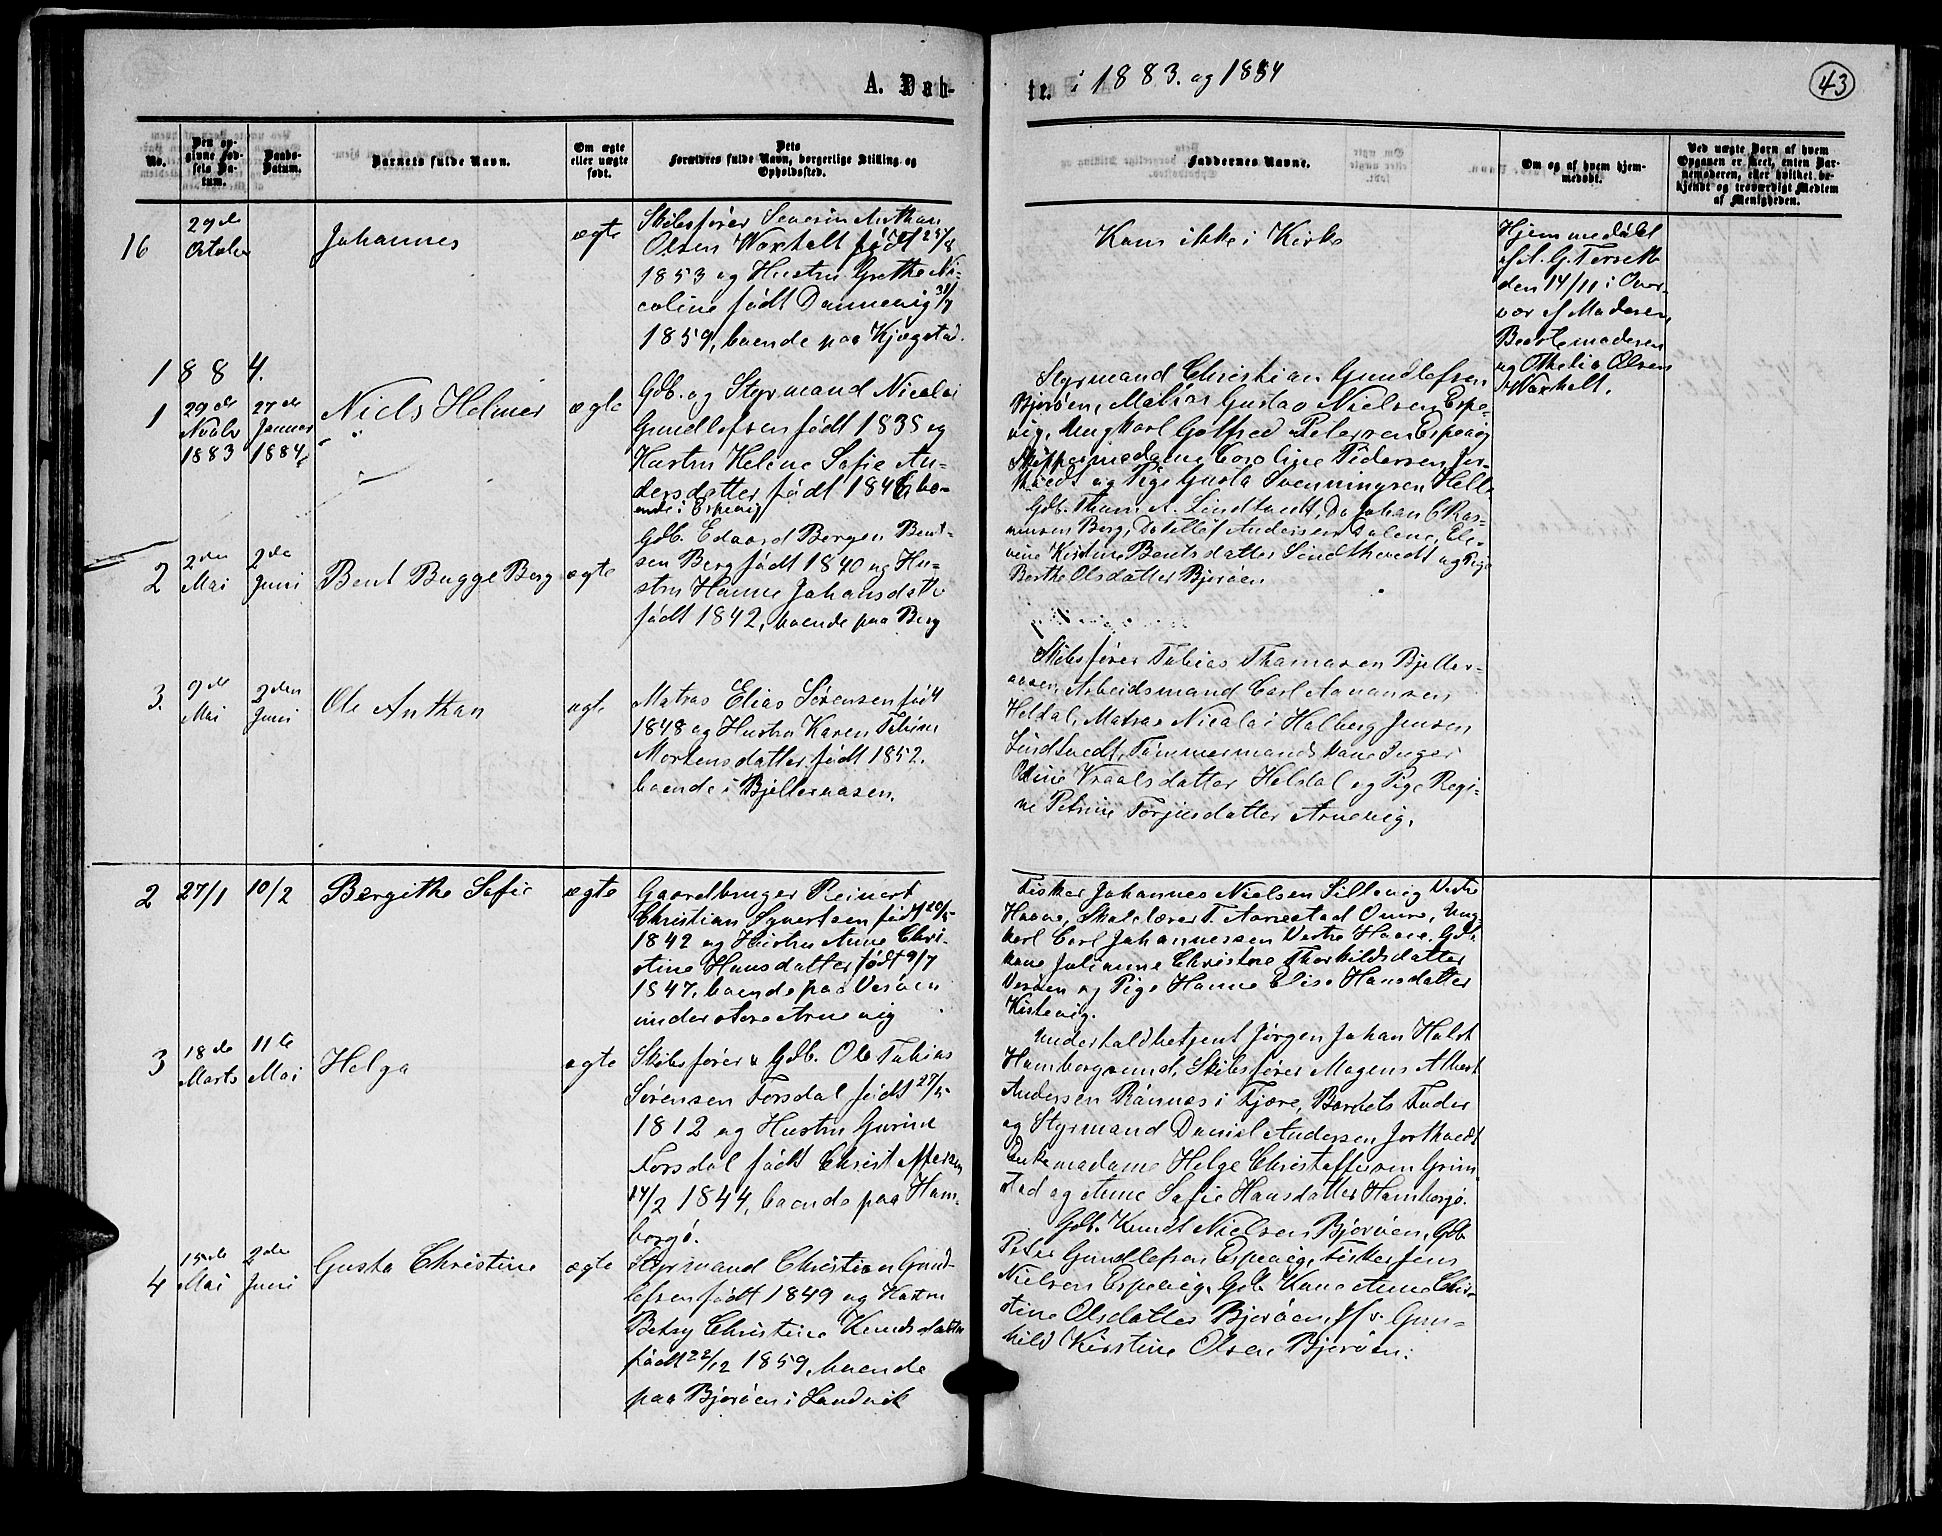 A. Døb-
te. i 1883. og 1884
43
No.
Den opgivne Fødsels Datum.
Daabs-Datum.
Barnets fulde Navn.
Om ægte eller uægte født.
Dets Forældres fulde Navn, borgerlige Stilling og Opholdssted.
Faddernes Navne.
Om og af hvem hjemmedøbt.
Ved uægte Barn af hvem Opgaven er skeet, enten Barnemoderen, eller hvilket bekjendt og troværdigt Medlem af Menigheden.
16
29de
Octobr
Johannes
ægte
Skibsfører Severin Anthon
Olsen Woxholt født 25/8
1853 og Hustru Grethe Ni-
coline født Dannevig 31/7
1859, boende paa Kjøgstad.
Kom ikke i Kirke
Hjemmedøbt
af
den 14/11 i Over-
vær af Moderen,
Bedstemoderen
og Othelia Olsen
Woxholt.
1884.
1
29de
Novbr
1883
27de
Januar
1884
Niels Helmer
ægte
Gdb. og Styrmand Nicolai
Gundlefsen født 1835 og
Hustru Helene Sofie An-
dersdatter født 1846, bo-
ende i Espevig
Styrmand Christian Gundlefsen
Bjorøen, Matros Gustav Nielsen Espe-
vig, Ungkarl Gotfred Petersen Espevig
Skippermadame Caroline Pedersen Jor-
tvedt og Pige Gusta Svenningsen Helle
2
2den
Mai
2de
Juni
Bent Bugge Berg
ægte
Gdb. Edvard Bergen Bent-
sen Berg født 1840 og Hu-
stru Hanne Johansdatr
født 1842, boende paa Berg
Gdb. Thom. A. Lindtvedt, Do Johan C Ras-
mussen Berg, Do Anderssen Dalene, Ele-
vine Kirstine Bentsdatter Lindtvedt og Pige
Berthe Olsdatter Bjorøen
3.
9de
Mai
2den
Juni
Ole Anthon
ægte
Matros Elias Sørensen født
1848 og Hustru Karen Tobine
Mortensdatter født 1852.
boende i Bjelleraasen.
Skibsfører Tobias Thomasen Bjeller-
aasen, Arbeidsmand Carl Aanonsen
Heldal, Matros Nicolai Holberg Jensen
Lindtvedt, Tømmermands Kone Inger
Oline Knudsdatter Heldal og Pige Regi-
ne Petrine Torjusdatter Arnevig.
2
27/1
10/2
Bergithe Sofie
ægte
Gaardbruger Reinert
Christian Syvertsen født 20/5
1842 og Hustru Anne Chri-
stine Hansdatter født 9/7
1847, boende paa Verven
under store Arnevig
Fisker Johannes Nielsen Sillevig Vestre
Haave, Skolelærer T. Aanestad Omre, Ung-
karl Carl Johannessen Vestre Haave, Gdb.
kone Julianne Christine Thorkildsdatter
Verven og Pige Hanne Elise Hansdatter
Kistevig.
3
18de
Marts
11te
Mai
Helga
ægte
Skibsfører & Gdb. Ole Tobias
Sørensen Forsdal født 27/5
1812 og Hustru Gurine
Forsdal født Christoffersen
14/2 1844, boende paa Ham-
borgø.
Undertoldbetjent Jørgen Johan Holst
Hamborgsund, Skibsfører Magens Albert
Andersen Rønnes i Fjære, Barnets Fader
og Styrmand Daniel Andersen Jortvedt
Enkemadame Helge Christoffersen Grim-
stad og Anne Sofie Hansdatter Hamborgø.
4
15de
Mai
2de
Juni
Gusta Christine
ægte
Styrmand Christian Gund-
lefsen født 1849 og Hustru
Betsy Christine Knudsdatter
født 22/12 1859, boende
paa Bjorøen i Landvik
Gdb. Knudt Nielsen Bjorøen, Gdb
Peter Gundlefsen Espevig, Fisker Jens
Nielsen Espevig, Gdb. Kone Anne Chri-
stine Olsdatter Bjorøen, Jfr. Gun-
hild Kirstine Olsen Bjorøen.